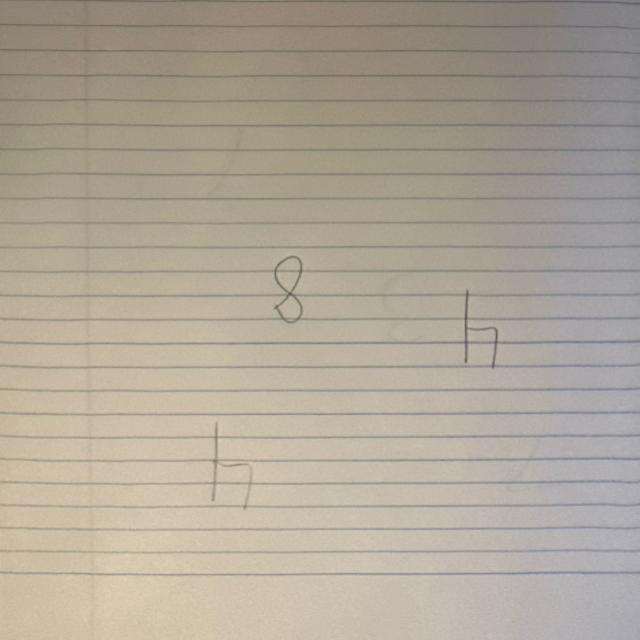 8
h
h